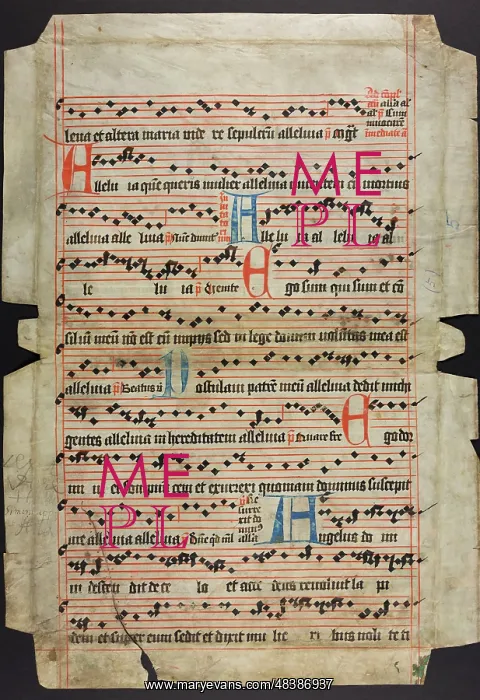 lena et altera maria vide re sepulcrū alleluia
Alleluia quē queris mulier alleluia viventem cū mortuis
alleluia alle luia Alle lu ia al lelu ia al
le lu ia p̄ Venite Ego sum qui sum et cō
siliū meū nō est cū impijs sed in lege domini voluntas mea est
alleluia p̄ Beatus v̄ Postulavi patrē meū alleluia dedit michi
gentes alleluia in hereditatem alleluia p̄ Quare fre Ego dor
mi vi et sompnū cepi et exurrexi quoniam dominus suscepit
me alleluia alleluia Dn̄e qd Angelus do mi
ni descen dit de ce lo et acce dens revolvit la pi
dem et super eum sedit et dixit mu lie ri bus noli te ti
ME
PL
ME
PL
www.maryevans.com/48386937